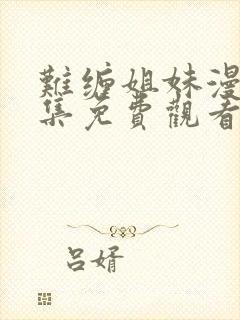 難缠姐妹漫
集免費觀看
吕婿